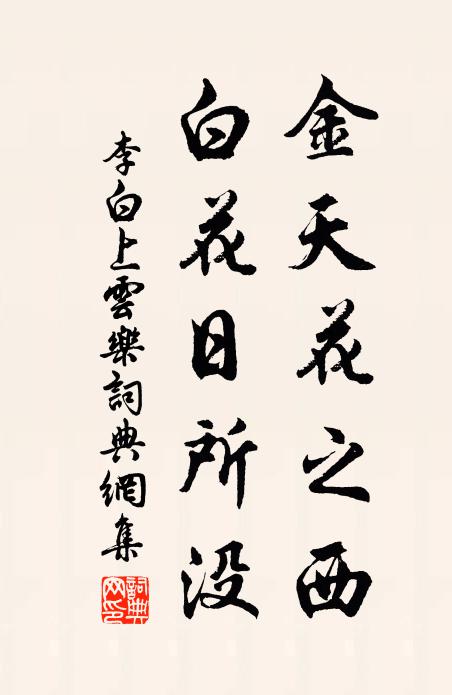 金天花之西
白花日所没
李白上雲樂詞典網集
詞典
网印